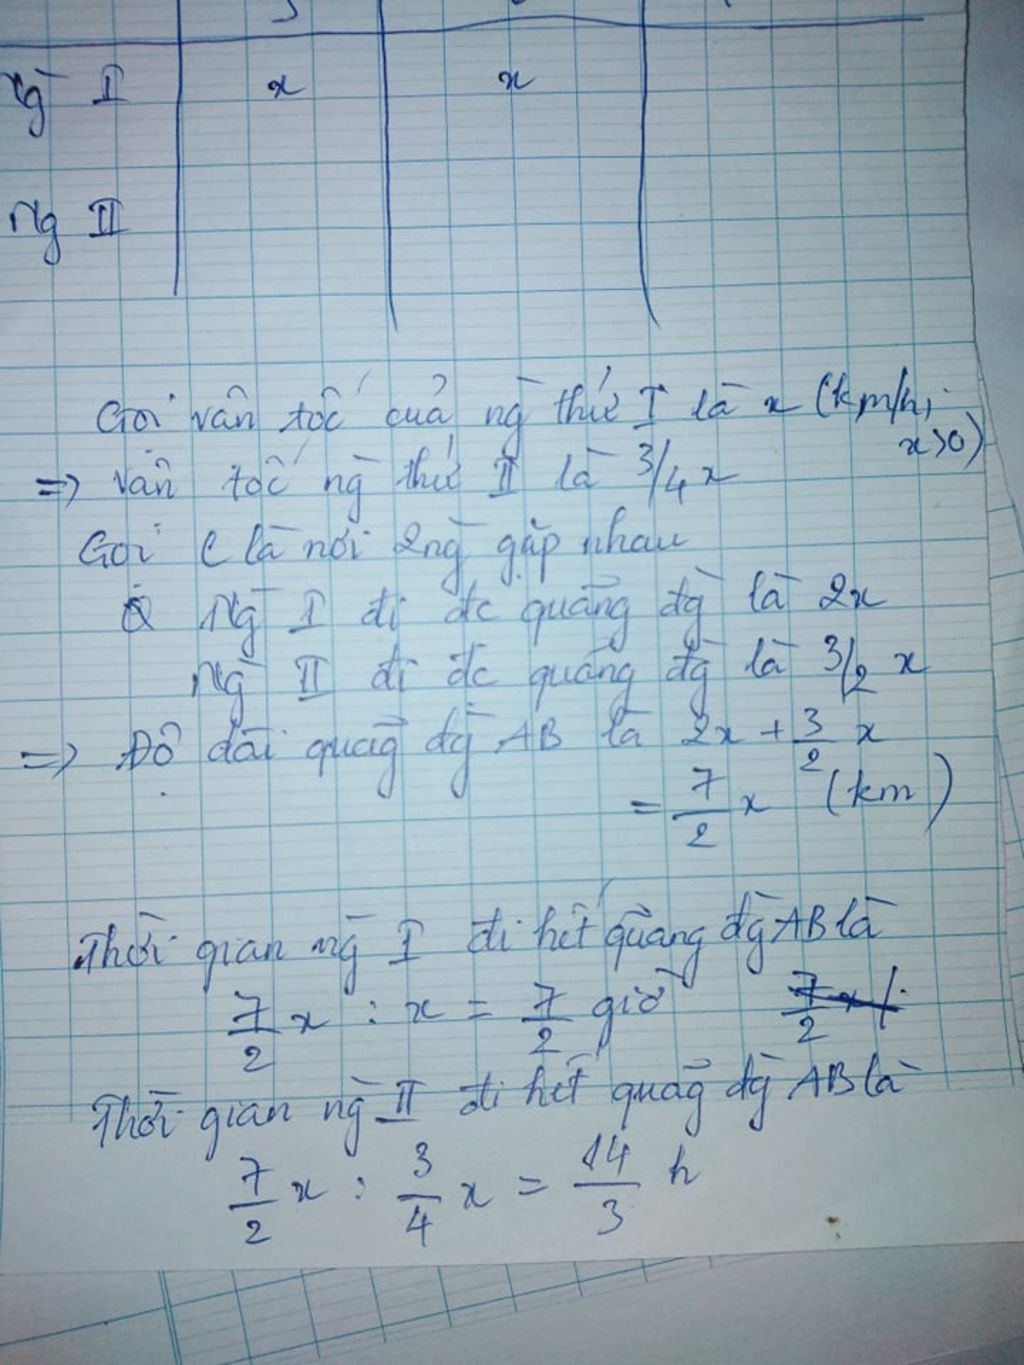 Ng I x x
Ng II
Gọi vận tốc của ng thứ I là x (km/h;
x>0)
=> Vận tốc ng thứ II là 3/4 x
Gọi C là nơi 2ng gặp nhau
Ng I đi đc quãng đg là 2x
Ng II đi đc quãng đg là 3/2 x
=> Độ dài quãg đg AB là 2x + 3/2 x
= 7/2 x (km)
Thời gian ng I đi hết quãng đg AB là
7/2 x : x = 7/2 giờ
Thời gian ng II đi hết quãg đg AB là
7/2 x : 3/4 x = 14/3 h